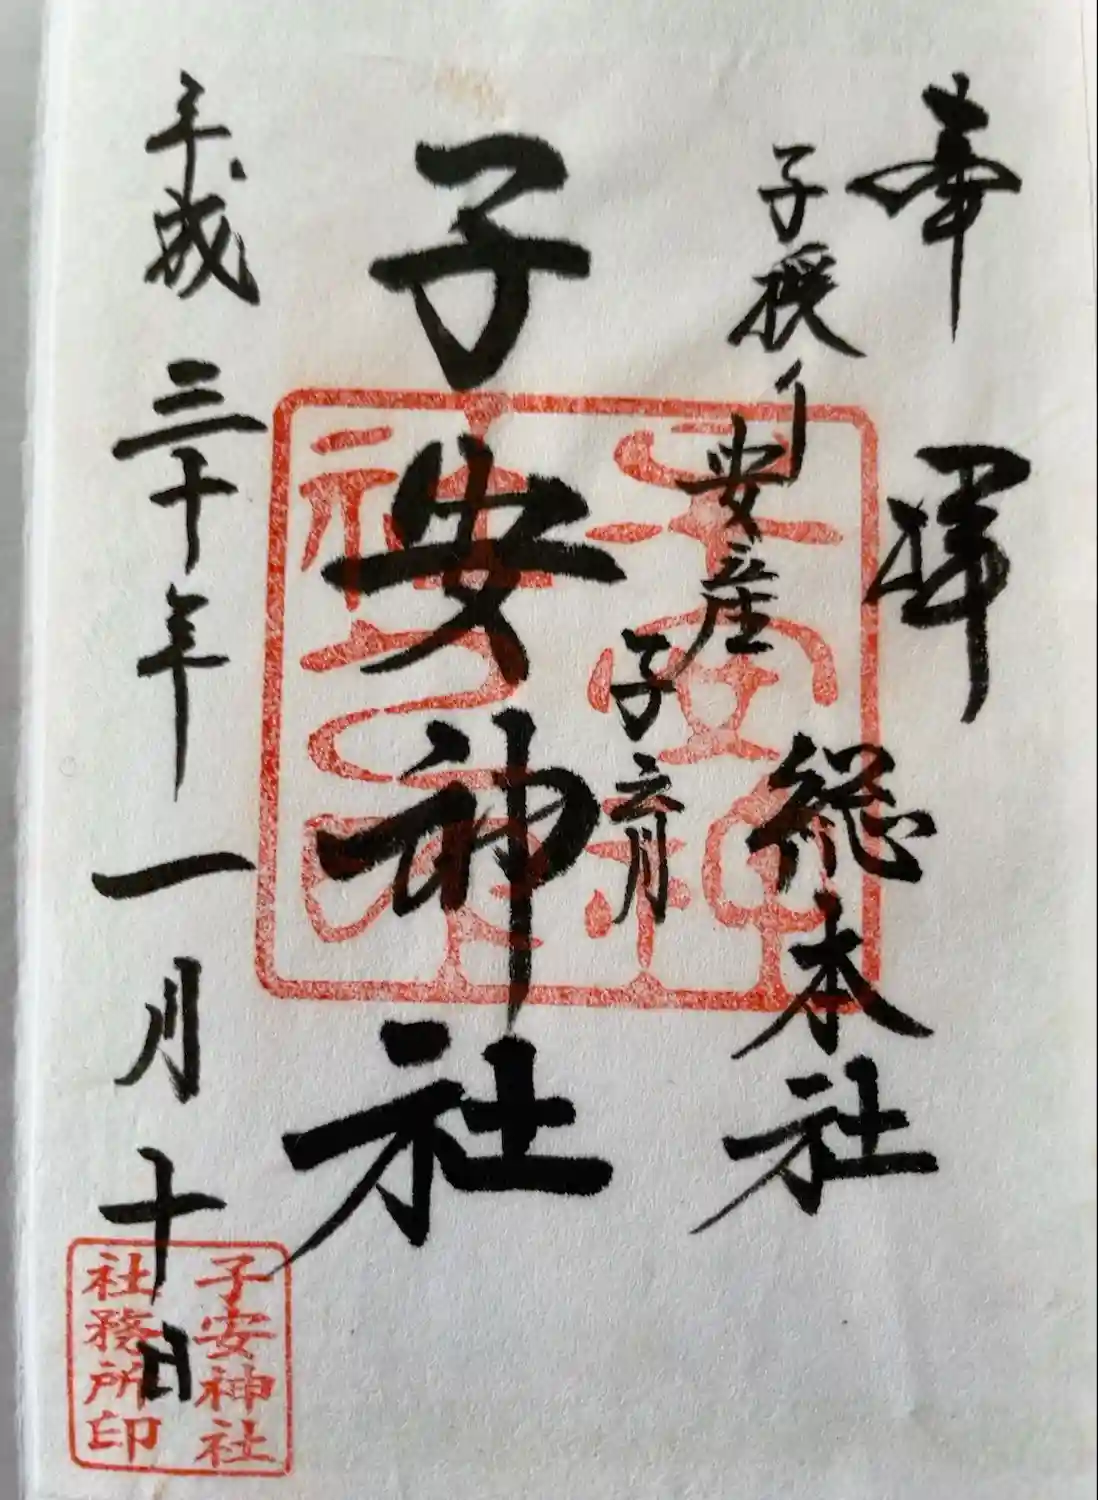 奉拝
子授け
安産
子育
総本社
子安神社
平成三十年一月十日
子安神
社之印
子安神社
社務所印